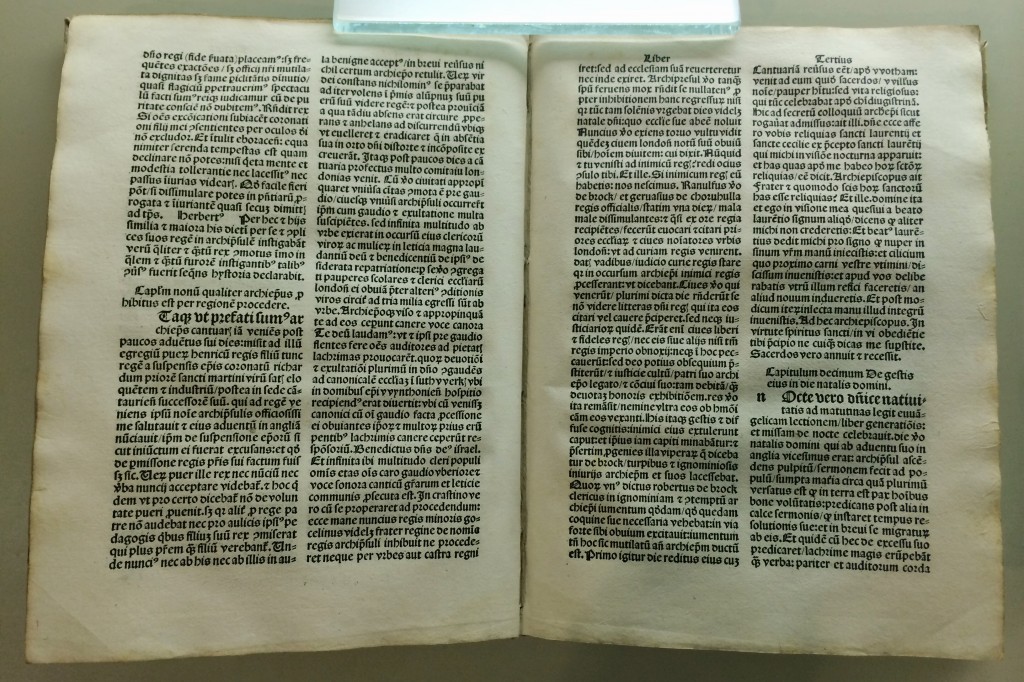 dño regi (fide ẛuata) placeam⁹: sȝ fre-
quētes exactōes / sȝ officij nr̄i mutila-
ta dignitas sȝ fame piclitātis dīnutio /
quasi flagiciū ppetrauerim⁹ spectacu
lū facti sum⁹. reiq̨ iudicamur cū de pu
ritate consciē nō dubitem⁹. Rn̄dit rex
Si oēs excōicationi subiacēt coronati
oni filij mei ɔsentientes per oculos di
nō excludor. Et itule eboraceñ: equa
nimiter ferenda tempestas est quam
declinare nō potes: nisi q̄eta mente et
modestia tollerantie nec lacessit⁹ nec
passus iiurias videar. Qō facile fieri
pōt / si dissimulare potes in pn̄tiarū p
rogata ⁊ iiuriante quasi secuȝ dimitt
ad tp̄s. Herbert⁹ Per hec ⁊ hijs
similia ⁊ maiora his dietī per se ⁊ ɔpli
ces suos regē in archip̄sulē instigabāt
verū q̄liter ⁊ q̄tū rex ɔmotus imo in
q̄lem ⁊ q̄tū furorē instigantib⁹ talib⁹
ɔuˢ⁹ fuerit seq̄ns hystoria declarabit.
Capl̄m nonū qualiter archiep̄us p
hibitus est per regionē procedere.
Taqȝ vt prefati sum⁹ ar
chiep̄s cantuar iā veniēs post
paucos aduētus sui dies: misit ad illū
egregiū pueꝝ henricū regis filiū tunc
regē a suspensis ep̄is coronatū richar
dum priorē sancti martini virū satȝ elo
quētem ⁊ industriū / postea in sede cā-
tuarieñ successorē suū. qui ad regē ve
niens ip̄sū noīe archip̄sulis officiosissi
me salutauit ⁊ eius aduentū in angliā
nūciauit / ip̄m de suspensione ep̄orū si
cut iniūctum ei fuerat excusans: et qȝ
de p̄missione regis pr̄is sui factum fuis
sȝ sic. Veȝ puer ille rex nec nūciū nec
ṽba nuncij acceptare videbat. ⁊ hoc q̄
dem vt pro certo dicebat nō de volun
tate pueri ɔuenit. sȝ qȝ alif p̄ rege pa
tre nō audebat nec pro aulicis ip̄si⁹ pe
dagogis q̄bus filius suū rex ɔmiserat
qui plus pr̄em q̄ȝ filiū verebant. Un-
de nunci⁹ nec ab his nec ab illis in au-
la benigne accept⁹ / in breui reūsus ni
chil certum archiep̄o retulit. Veȝ vir
dei constans nichilomin⁹ se p̄parabat
ad iter volens ip̄mis alūpnuȝ suū pu
erū suū videre regē: ⁊ postea prouiciā
a qua tādiu absens erat circuire. ppe-
rans ⁊ anhelans ad discurrendū vbiqȝ
vt euelleret ⁊ eradicaret q̄ in absētia
sua in orto dn̄i distorte ⁊ incōposite ex
creuerāt. Itaqȝ post paucos dies a cā
tuaria profectus multo comitatu lon-
donias venit. Cū v̄o ciuitati appropi
quaret vniūsa citas ɔmota ē pre gau-
dio / eiusqȝ vniūsi archip̄suli occurrēt
ip̄m cum gaudio ⁊ exultatione multa
suscipiētes. sed infinita multitudo ab
vrbe exierat in occursū eius clericorū
viroꝝ ac mulieꝝ in leticia magna lau-
dantiū deū ⁊ benedicentiū de ip̄si⁹ de
siderata repatriatione: p̄ se v̄o ɔgrega
ti pauperes scolares ⁊ clerici eccl̄iarū
londoñ ei obuiā p̄ter alterī⁹ ɔditionis
viros circif ad tria milia egressi sūt ab
vrbe. Archiep̄oqȝ viso ⁊ appropinquā
te ad eos cepunt canere voce canora
Te deū laudam⁹: vt ⁊ ip̄si pre gaudio
flentes fere oēs auditores ad pietatȝ
lachrimas prouocarēt. quoꝝ deuotiōi
⁊ exultatiōi plurimū in dn̄o ɔgaudēs
ad canonicalē eccl̄iaȝ ī suthvverk / vbi
in domibus ep̄i vvynthonieñ hospitio
recipiend⁹ erat diuertit: vbi cū venissȝ
canonici cū oī gaudio facta pcessione
ei obuiantes ip̄or ⁊ multoꝝ prius erū
pentib⁹ lachrimis canere ceperūt res-
pōsoriū. Benedictus dn̄s de⁹ israel.
Et infinita ibi multitudo cleri populi
om̄is etas oīs caro gaudio vberiore ⁊
voce sonora canticū ḡrarum et leticie
communis ɔsecuta est. In crastino ve
ro cū se properaret ad procedendum:
ecce mane nuncius regis minoris go-
celinus videlȝ frater regine de noīnis
regis archip̄suli inhibuit ne procede-
ret neque per vrbes aut castra regni
Liber
iret: sed ad ecclesiam suā reuerteretur
nec inde exiret. Archip̄resul v̄o tanqȝ
sp̄ū feruens mox rn̄dit se nullaten⁹ p
pter inhibitionem hanc regressuȝ nisi
qȝ tūc tam solēnis vrgebat dies videlȝ
natale dn̄i quo eccl̄ie sue abeē noluit
Nuncius v̄o exiens toruo vultu vidit
quēdeȝ ciuem londoñ notū suū obuiū
sibi / hoīem diuitem: cui dixit. Nūquid
⁊ tu venisti ad inimicū regȝ: redi ocius
ɔsulo tibi. Et ille. Si inimicuȝ regȝ eū
habetis: nos nescimus. Ranulfus v̄o
de brock / et geruasius de chorūhulla
regis officialis / statim vna dieꝝ / mala
male dissimulantes: ⁊ q̄si ex ore regis
recipiētes / fecerūt euocari ⁊ citari pri-
ores eccl̄iaꝝ ⁊ ciues nōiatores vrbis
londoñ: vt ad curiam regis venirent.
dat vadibus / iudicio curie regis stare
qȝ in occursum archiep̄i inimici regis
pcesserant: vt dicebant. Ciues v̄o qui
venerūt / plurimi dicta die rn̄derūt se
nō videre litteras dn̄i regȝ qui ita eos
citari vel cauere p̄ciperet. sed neqȝ iu-
sticiarioȝ quidē. Erāt eni ciues liberi
⁊ fideles regȝ / nec eis siue alijs nisi tm̄
regis imperio obnoxij: neqȝ ī hoc pec-
cauerūt: sed deo potius obsequium p̄-
stiterūt / ⁊ iusticie cultū / patri suo archi
ep̄o legato / ⁊ cōciui suo: tam debitā / q̄ȝ
deuotaȝ honoris exhibitiōem. res v̄o
ita remāsit / nemine vltra eos ob hmōi
cām eos vexante. His itaqȝ gestis ⁊ dif
fuse cognitis: inimici eius extulerunt
caput: et ip̄ius iam capiti minabāt: ⁊
p̄sertim pgenies illa viperaꝝ q̄ diceba
tur de brock / turpibus ⁊ ignominiosis
iniurijs archiep̄m et suos lacessebat.
Quoꝝ vn⁹ dictus robertus de brock
clericus in ignominiam ⁊ ɔtemptū ar
chiep̄i iumentum qōdam / qō quedam
coquine sue necessaria vehebat: in via
forte sibi obuium excitauit: iumentum
tñ hoc sic mutilatū añ archiep̄m ductū
est. Primo igitur die reditus eius cuȝ
Tertius
Cantuariā reūsus eēt / ap̄d vvotham:
venit ad eum quid sacerdos / vvillus
noīe / pauper hītu: sed vita religiosus:
qui tūc celebrabat ap̄d chidingistinā.
Hic ad secretū colloquiū archiep̄i sicut
rogauāt admissus: ait illi. dn̄e ecce aff̄e
ro vobis reliquias sancti laurentij et
sancte cecilie ex p̄cepto sancti laurētij
qui michi in visiōe nocturna apparuit:
et has quas apud me habeo hor sctōrū
reliquias / eē dicit. Archiepiscopus ait
Frater ⁊ quomodo scis hoꝝ sanctorū
has esse reliquias? Et ille. domine ita
et ego in visione mea quesiui a beato
laurētio signum aliqō / dicens qȝ aliter
michi non crederetis: Et beat⁹ laurē-
tius dedit michi pro signo qȝ nuper in
sinum vr̄m manū iniecistis: et cilicium
quo proximo carni vestre vtimini / di-
scissum inuenistis: et apud vos delibe
rabatis vtrū illum refici faceretis / an
aliud nouum indueretis. Et post mo-
dicum iter̄ iniecta manu illud integrū
inuenistis. Ad hec archiepiscopus. In
virtute spiritus sancti / in vi obedictiē
tibi p̄cipio ne cuiqȝ dicas me supstite.
Sacerdos vero annuit ⁊ recessit.
Capitulum decimum De gestis
eius in die natalis domini.
n Octe vero dn̄ice natiui-
tatis ad matutinas legit euuā-
gelicam lectionem / liber generatiōis:
et missam de nocte celebrauit. die v̄o
natalis domini qui ab aduentu suo in
anglia vicesimus erat: archip̄sul ascē-
dens pulpitū / sermonem fecit ad po-
pulū / sumpta mat̄ia circa quā plurimū
versatus est qȝ in terra est pax hoībus
bone volūtatis: predicans post alia in
calce sermonis / qȝ instaret tempus re-
solutionis sue: et in breui se migratuȝ
ab eis. Et quidē cū hec de excessu suo
predicaret / lachrime magis erūpebāt
q̄ȝ verba: pariter et auditorum corda